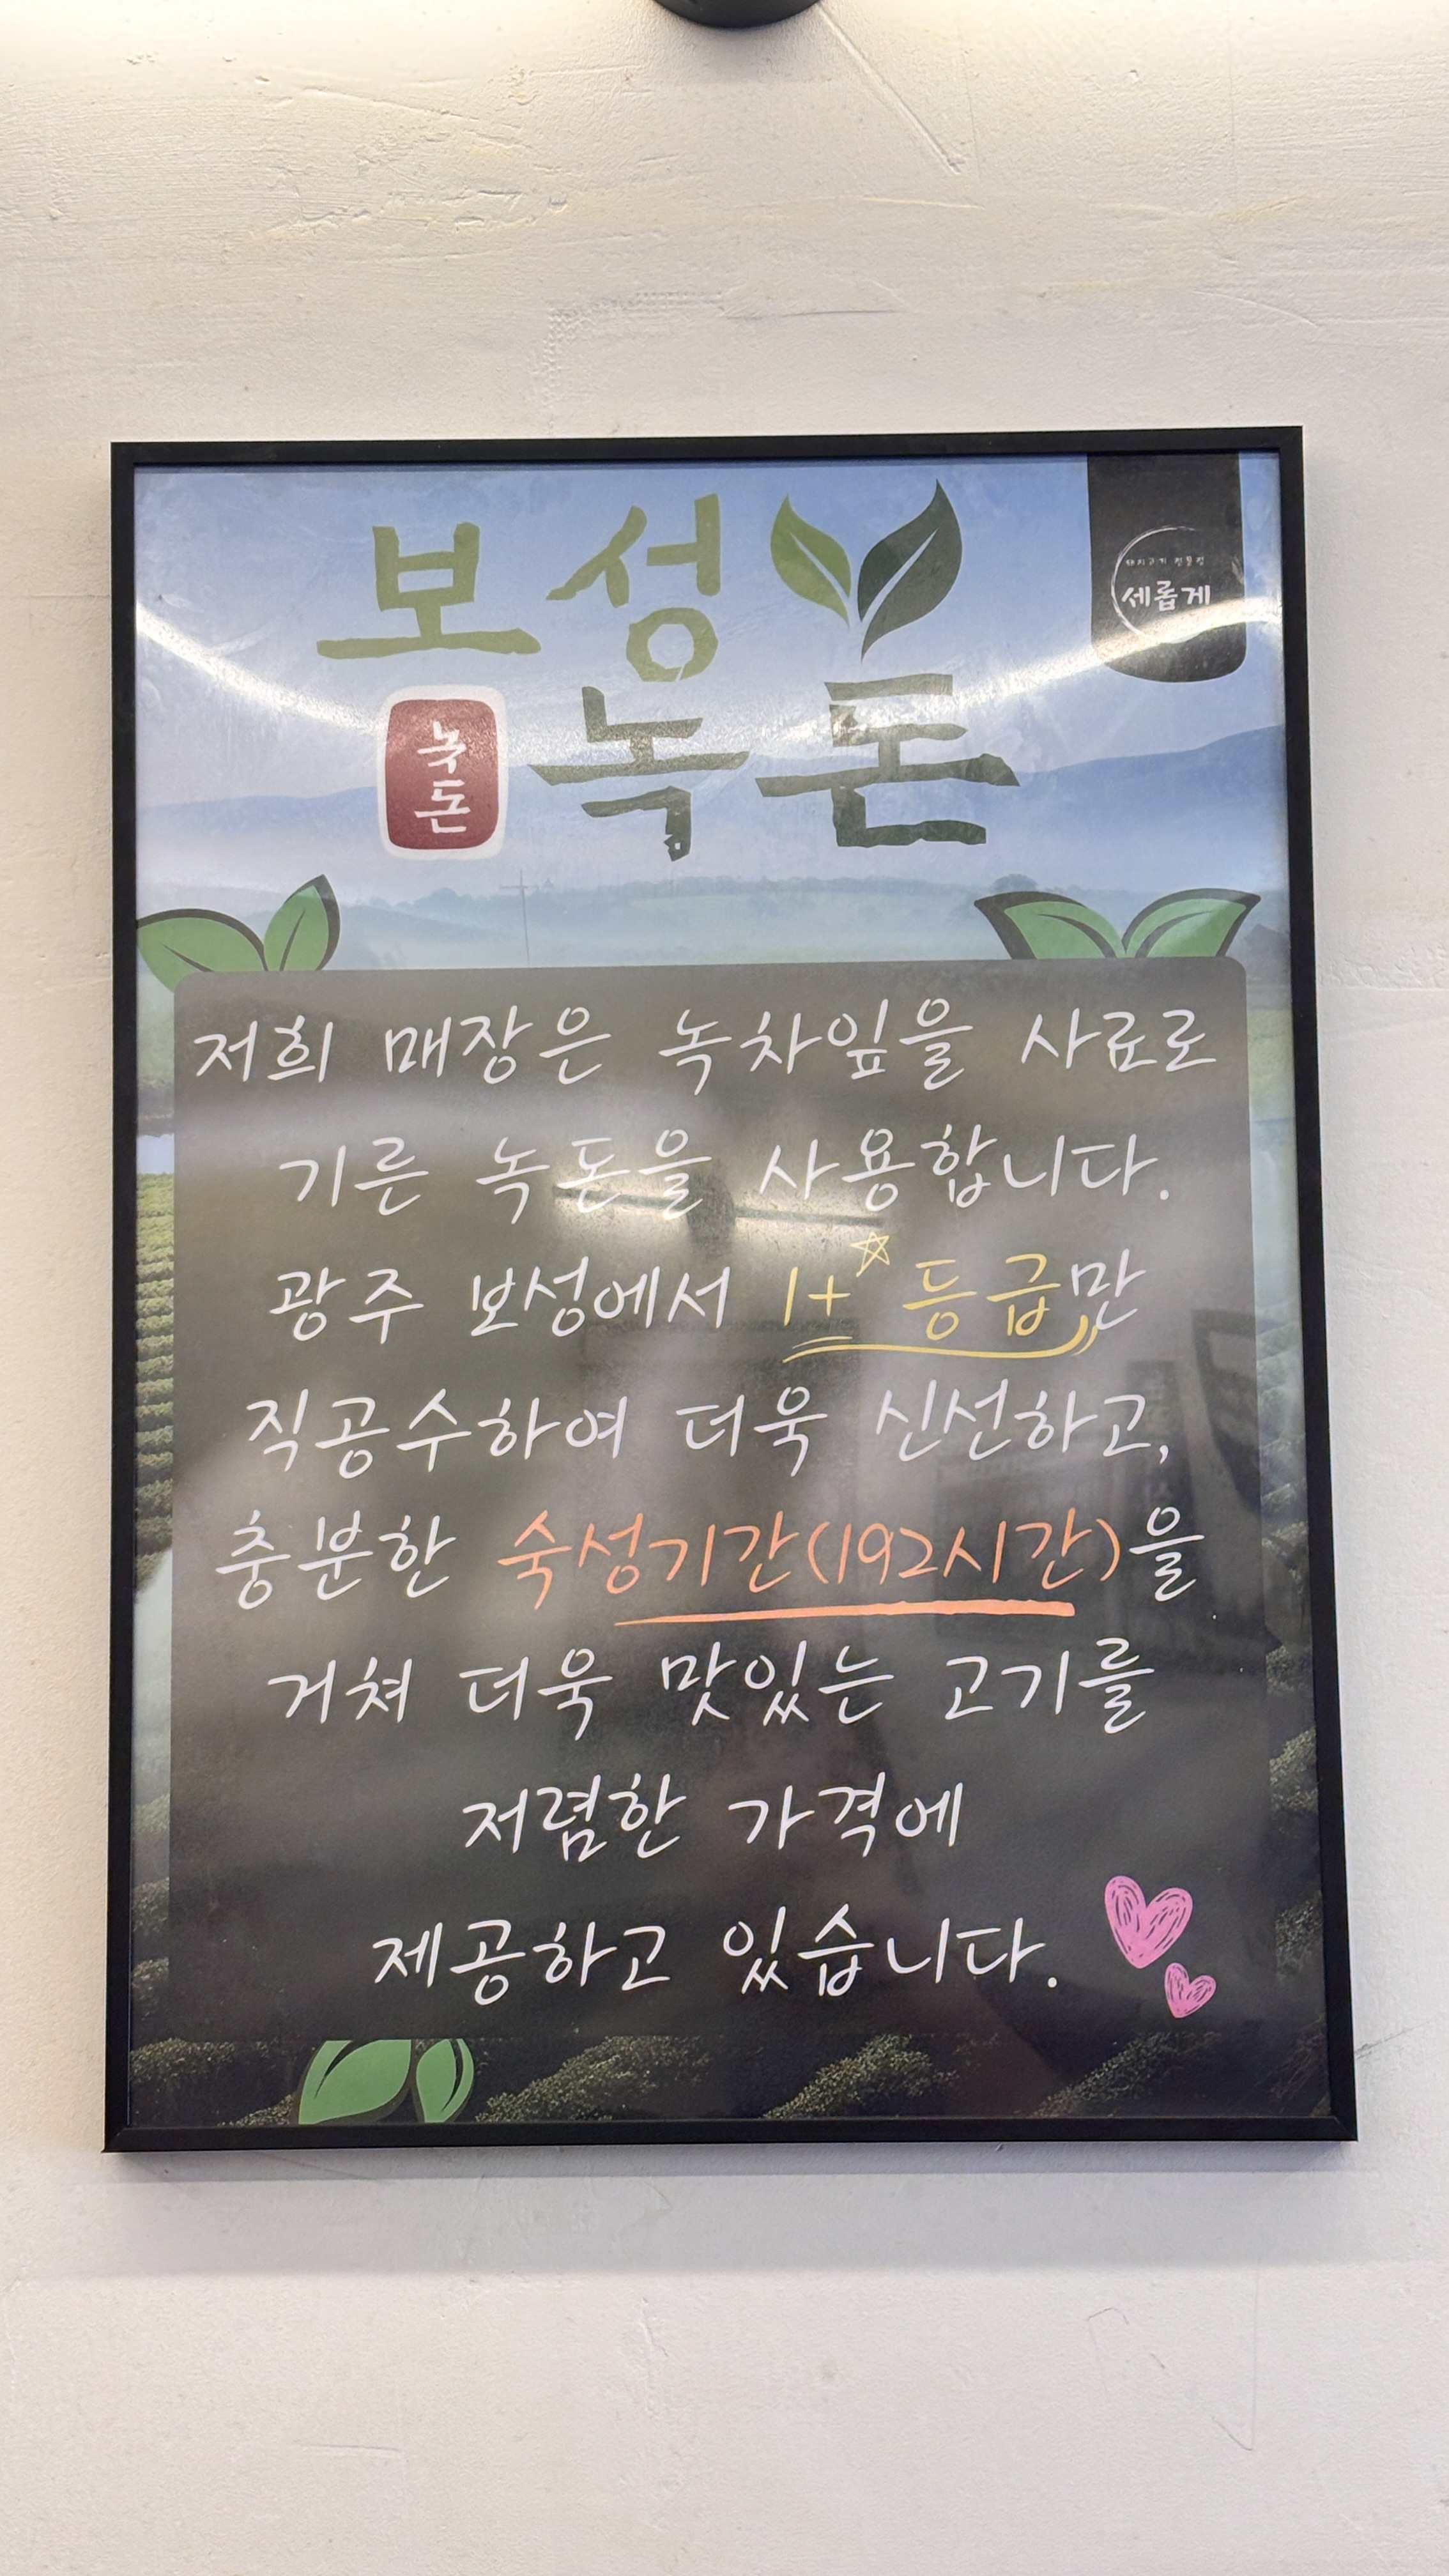 보성
돼지고기 전문점
세롭게
녹돈
녹돈
저희 매장은 녹차잎을 사료로
기른 녹돈을 사용합니다.
광주 보성에서 1+ 등급만
직공수하여 더욱 신선하고,
충분한 숙성기간(192시간)을
거쳐 더욱 맛있는 고기를
저렴한 가격에
제공하고 있습니다.